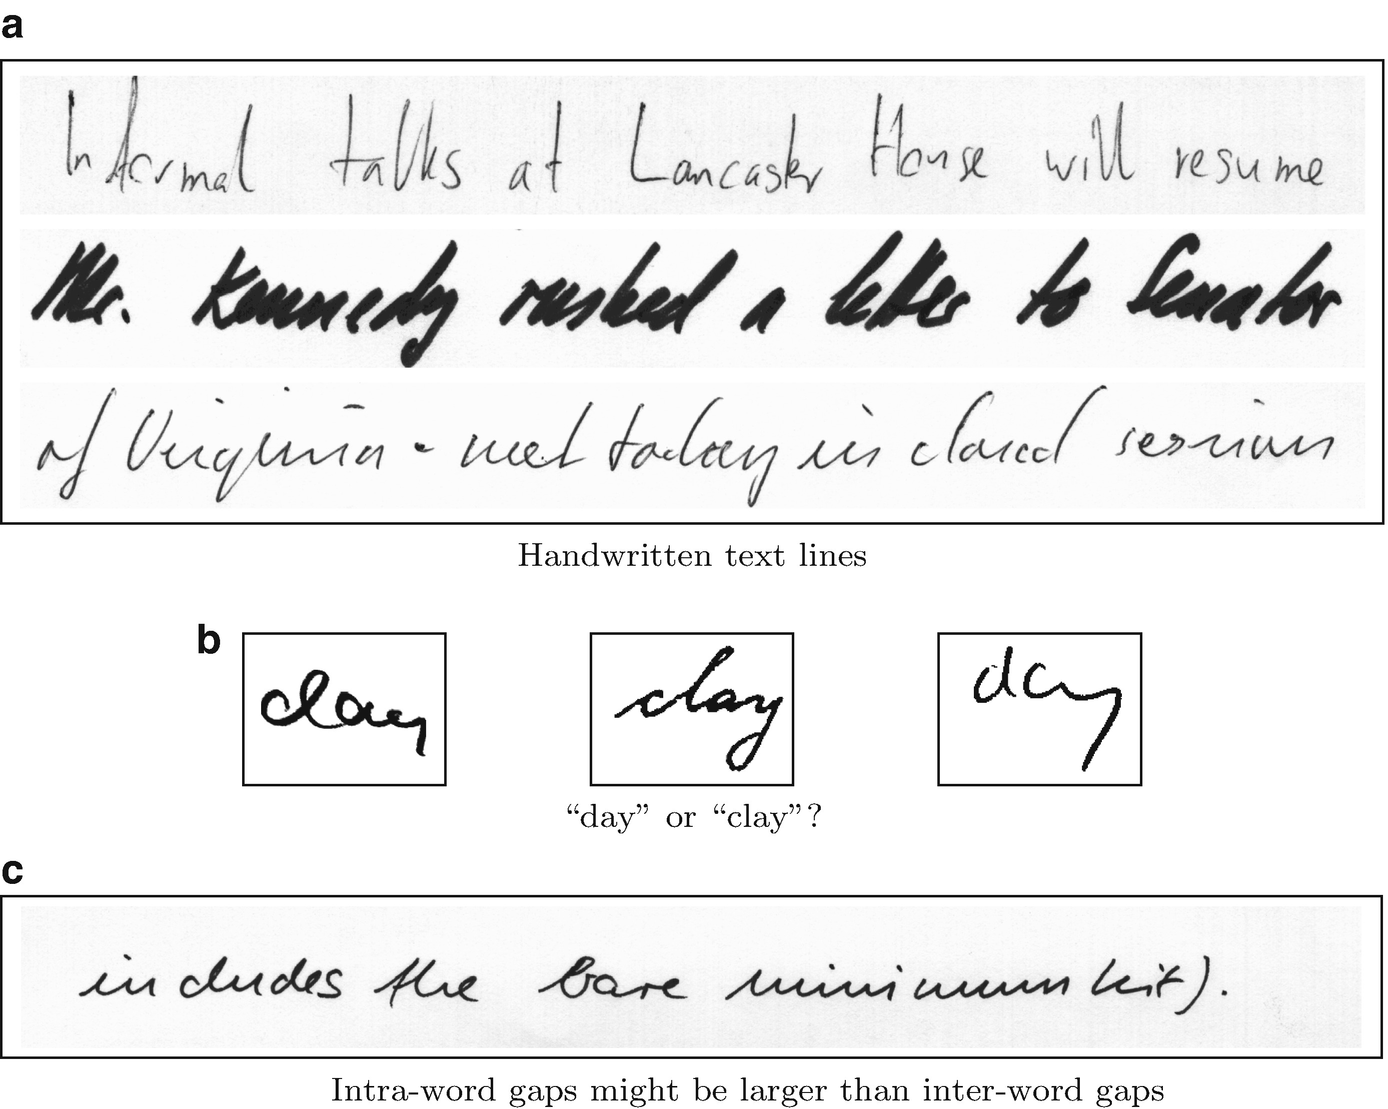 a
Informal talks at Lancaster House will resume
Mr. Kennedy rushed a letter to Senator
of Virginia - met today in closed session
Handwritten text lines
b
day clay day
“day” or “clay”?
c
includes the bare minimum kit).
Intra-word gaps might be larger than inter-word gaps